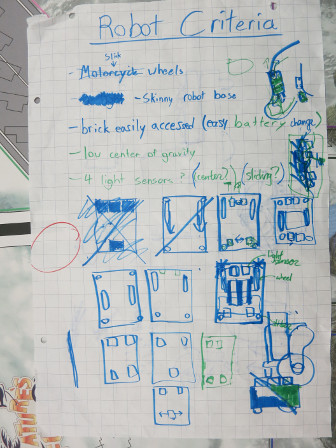 Robot Criteria
Slick
- Motorcycle wheels
- Skinny robot base
- brick easily accessed (easy battery change)
- low center of gravity
- 4 light sensors? (center?) (sliding?)
light
sensor
wheel